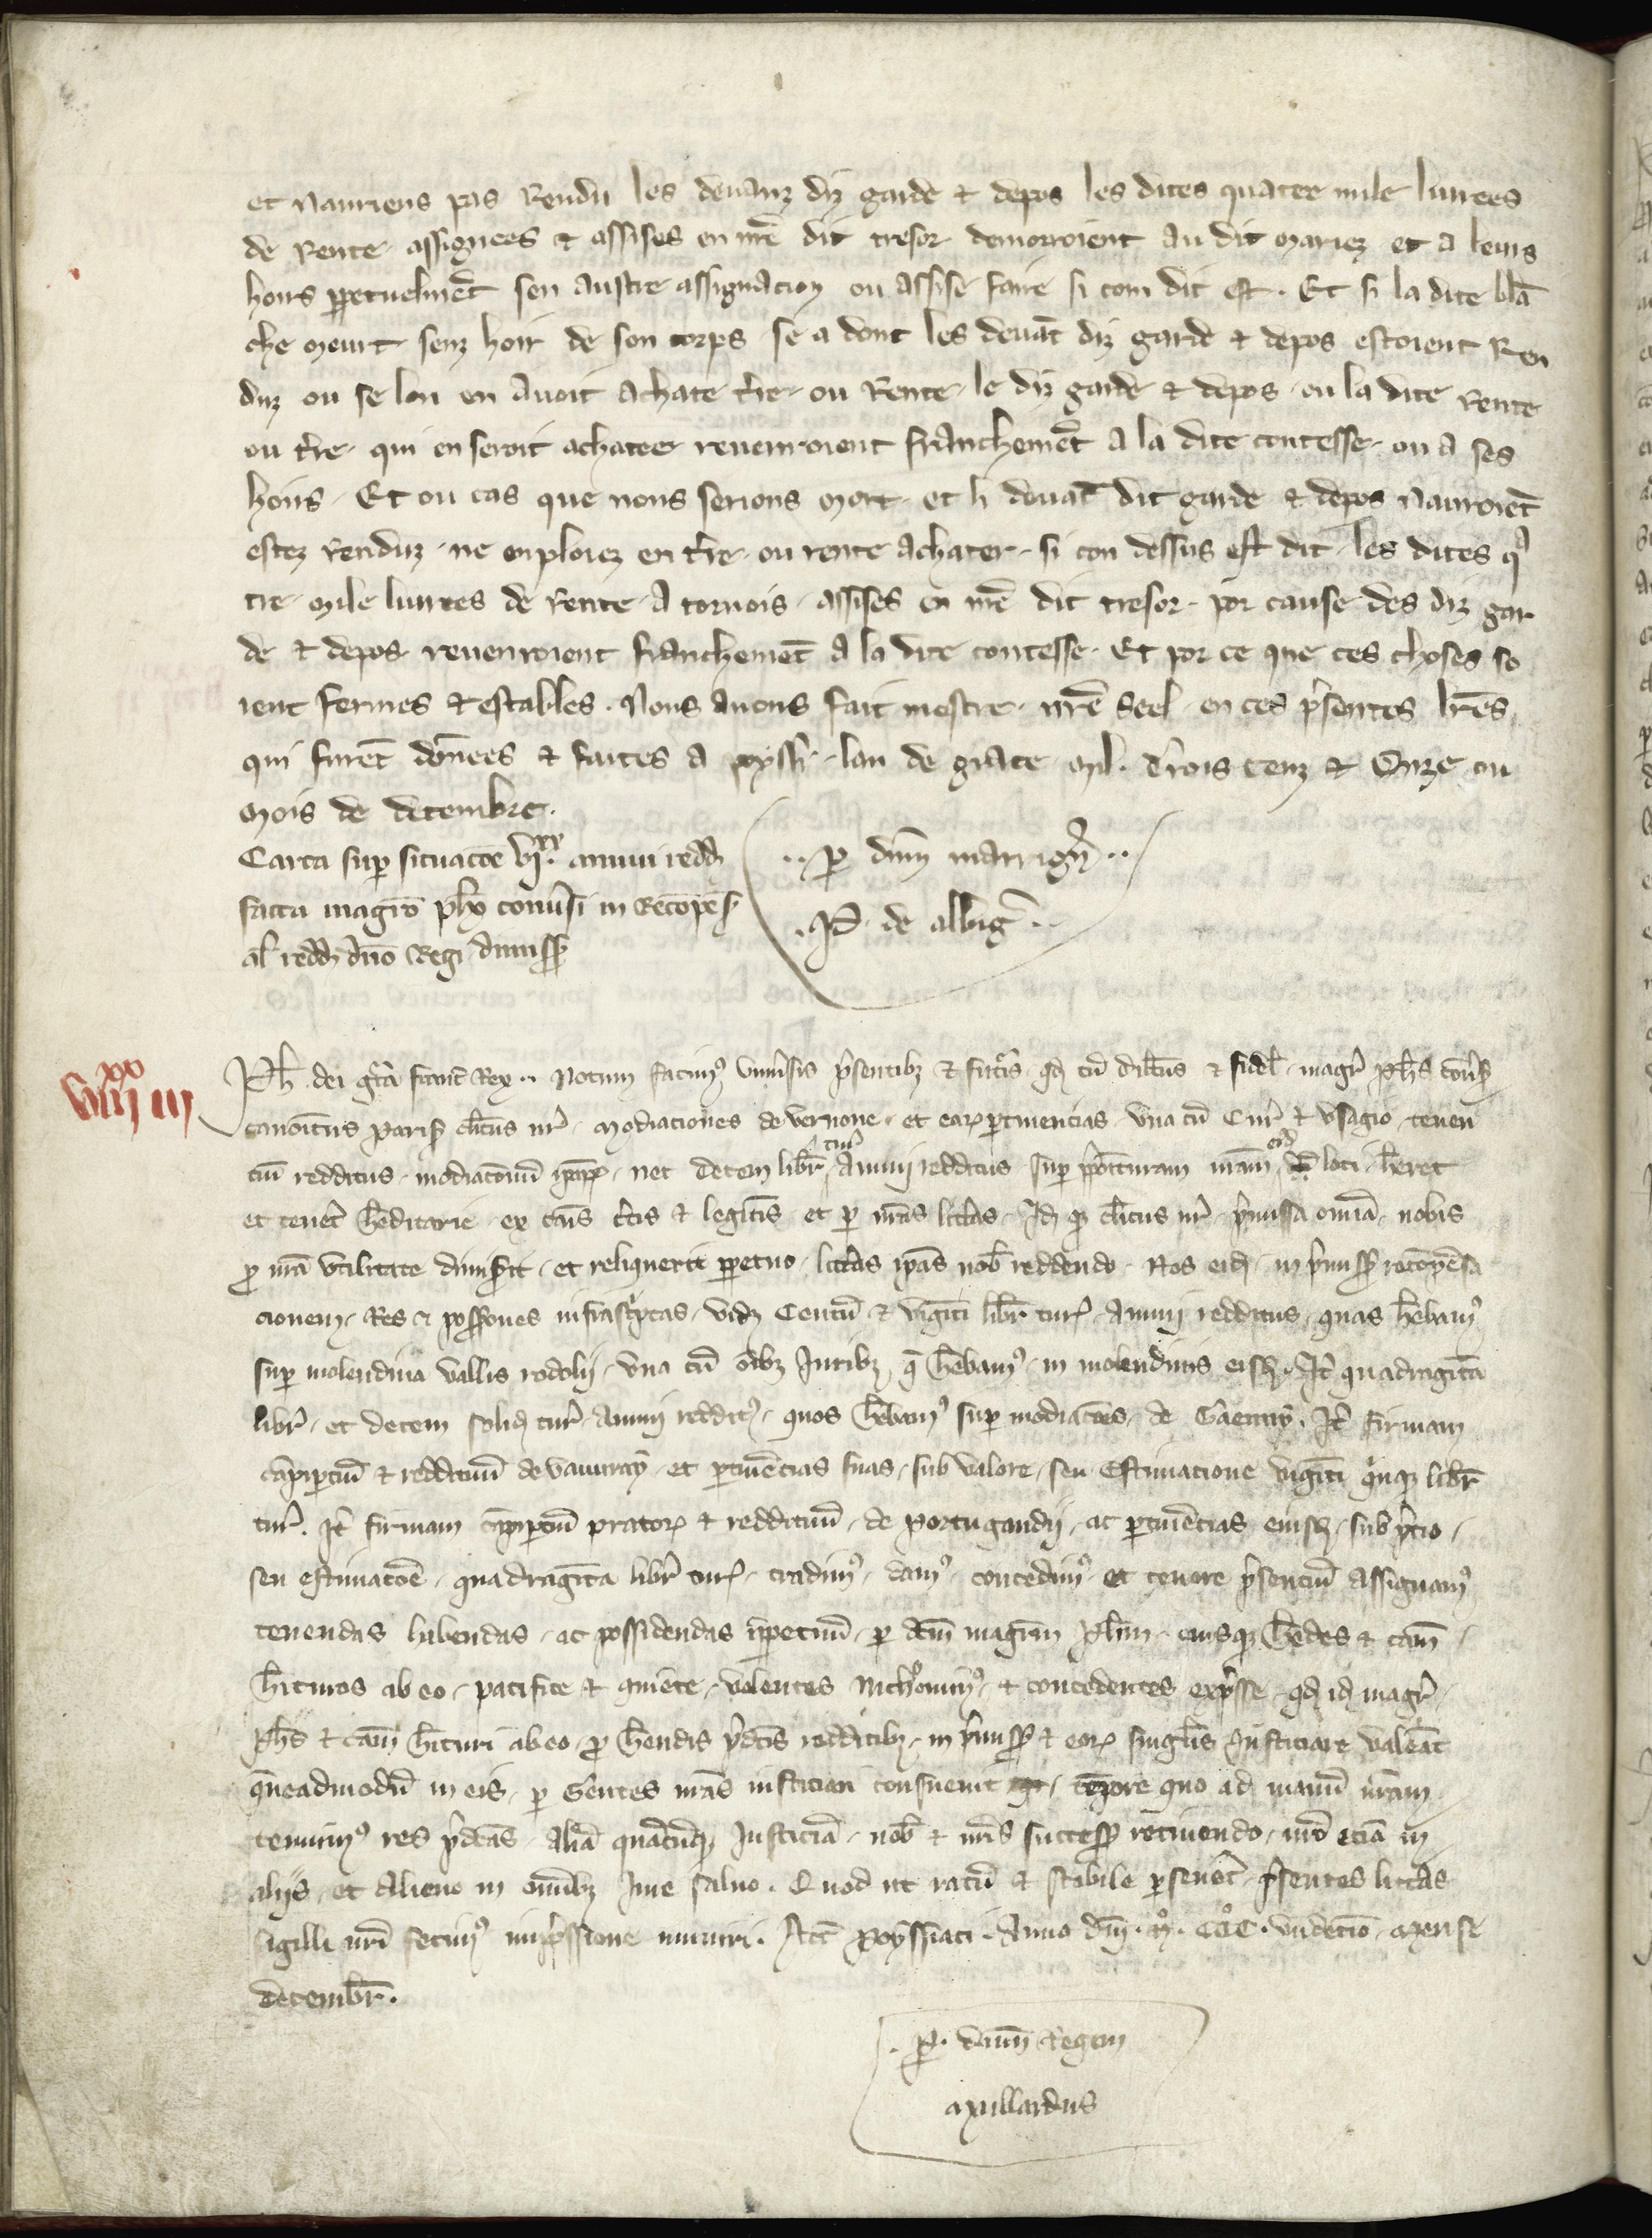 et nauriens pas rendu les devanz diz garde et depos les dites quatre mile livrees
de rente assignees et assises en nr̄e dit tresor demorroient au dit mariez et a leurs
hoirs ꝑpetuelmēt sen austre assignacion ou assise faire si com dit est. Et si la dite blā
che meurt senz hoir de son corps se a dont les devāt diz garde et depos estoient ren
duz ou se lon en avoit achate t̄re ou rente le diz garde et depos ou la dite rente
ou t̄re qui en seroit achatee revenroient franchemēt a la dite contesse ou a ses
hoirs. Et ou cas que nous serions mort et li devāt dit garde et depos nauroiēt
estez renduz ne emploiez en t̄re ou rente achater si con dessus est dit les dites q̄
tre mile livrees de rente a tornois assises en nr̄e dit tresor por cause des diz gar
de et depos revenroient franchemēt a la dite contesse. Et por ce que ces choses so
ient fermes et estables. Nous avons fait mestre nr̄e seel en ces p̄sentes lr̄es
qui furēt dōnees et faites a poyssi lan de grace mil. trois cenz et onze ou
mois de decembre.
Carta suꝑ situacōe vjxx. annui redd
facta magr̄o ph̄o conv̄si in recōpens̄
al̄ redd dn̄o Regi dimiss̄
.. ꝑ dn̄m marrign̄ ..
. P. de albign̄ ..
viijxx iij
Ph̄. dei gr̄a franc̄ Rex .. Notum facimꝰ univ̄sis p̄sentibꝫ et fut̄is qd cū dil̄cus et fidel̄ magr̄ Ph̄s conv̄s̄
canonicus paris̄ cl̄icus nr̄ modiaciones de vernone et eaꝝ ꝑtinencias una cū cur̄ et usagio tenen
ciū redditus modiaconū ip̄aꝝ nec decem libr̄ tur̄ annui redditus suꝑ p̄posituram nr̄am loci h̄eret
et tenēt h̄editarie ex caus̄ c̄tis et legitis et ꝑ nr̄as litt̄as Idqꝫ cl̄icus nr̄ p̄missa om̄ia nobis
ꝓ nr̄a utilitate dimis̄it et reliquerit ꝑpetuo litt̄as ip̄as nob̄ reddendo Nos eid̄ in p̄miss̄ recōpēsa
cionem Res et poss̄iones infrasc̄ptas vidꝫ Centū et viginti libr̄ tur̄ annui redditus quas h̄ebamꝰ
suꝑ molendina vallis rodolij una cū om̄ibꝫ Juribꝫ q̄ h̄ebamꝰ in molendinis eisd̄. It̄ quadraginta
libr̄ et decem solid̄ tur̄ annui redditꝰ quos h̄ebamꝰ suꝑ modiacōes de Gaenny. It̄ firmam
cāpiꝑtiū et reddituū de vauuray et ꝑtinēcias suas sub valore seu estimacione viginti q̄nqꝫ libr̄
tur̄. It̄ firmam cāpiꝑtiū pratoꝝ et reddituū de portugaudij ac ꝑtinēcias eiusd̄ sub p̄cio
seu estimacōe quadraginta libr̄ tur̄ tradimꝰ damꝰ concedimꝰ et tenore p̄senciū assignamꝰ
tenendas habendas ac possidendas inꝑpetuū ꝑ dc̄m magr̄m Ph̄m eiusqꝫ h̄edes et cam̄
h̄ituros ab eo pacifice et quiete volentes nichominꝰ et concedentes exp̄sse qd id magr̄
Ph̄s et cam̄ h̄ituri ab eo ꝓ h̄endis p̄dc̄is redditibꝫ in p̄miss̄ et eoꝝ singlis Justiciare valeāt
quēadmodū in eis ꝑ Gentes nr̄as iusticiari consuevit tēpore quo ad manū nr̄am
tenuimꝰ res p̄dc̄as alia quacūqꝫ Justicia nob̄ et nr̄is success̄ retinendo nr̄o eciā in
alijs et alieno in om̄ibꝫ Jure salvo. Quod ut ratū et stabile ꝑsev̄et p̄sentes litt̄as
sigilli nr̄i fecimꝰ imp̄ssione muniri. Act̄ Poyssiaci. Anno dn̄i. M̊. CC̊C. undecio mense
decembr̄.
. ꝑ. dn̄m Regem
Maillardus